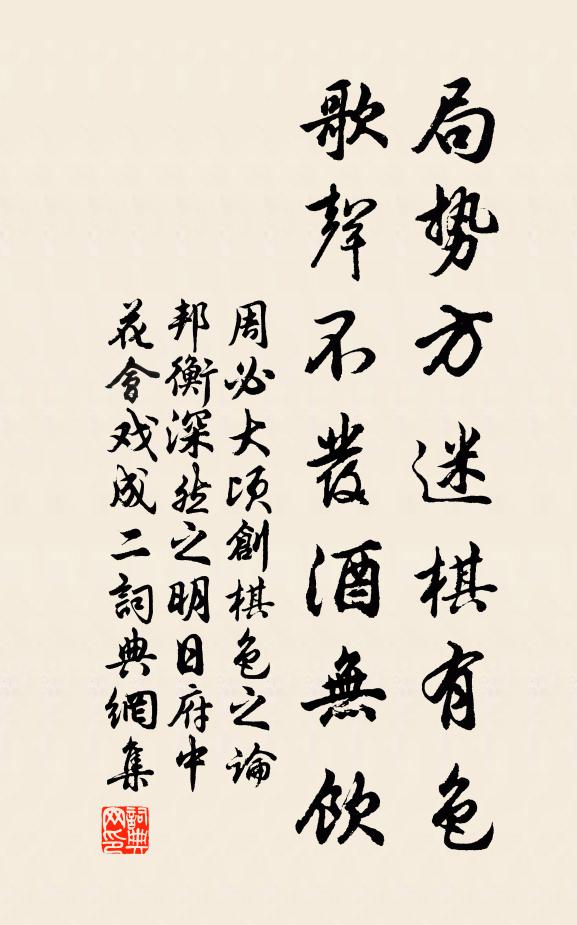 局势方迷棋有色
歌聲不發酒無飲
周必大頃創棋色之論
邦衡深然之明日府中
花會戏成二詞典網集
詞典
网印